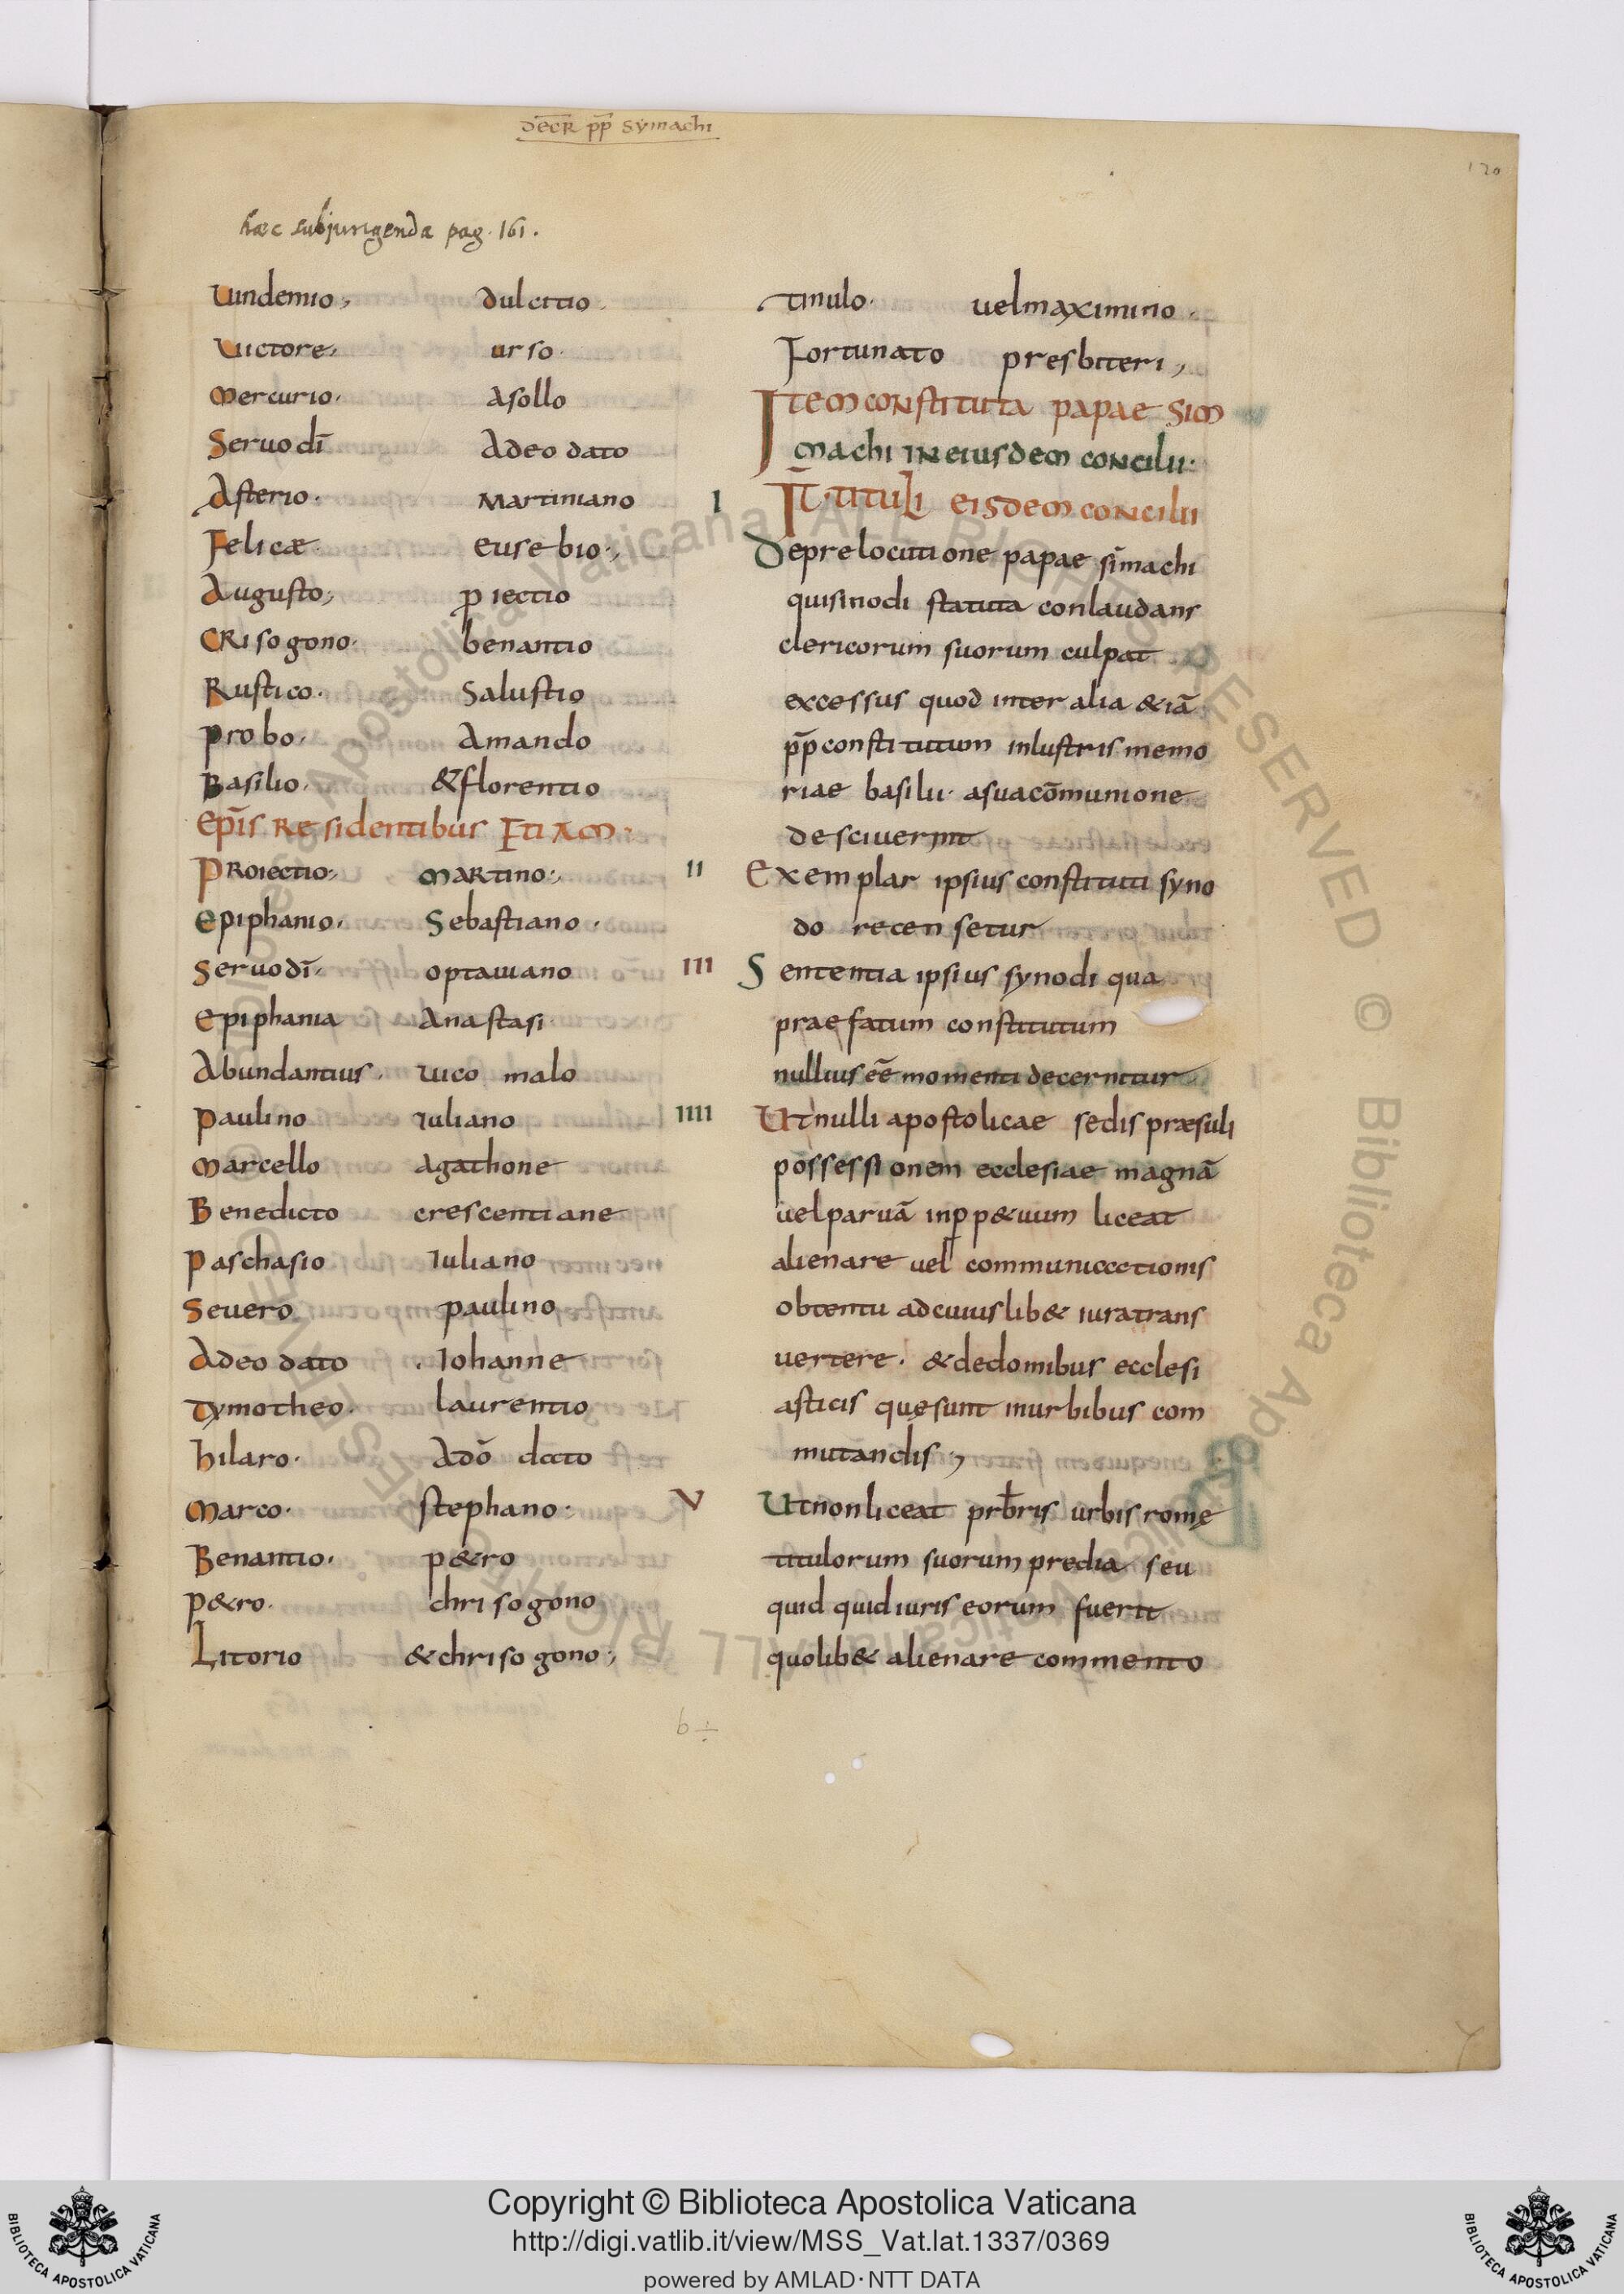 decr̄ pp̄ symachi
120
hæc subjungenda pag. 161.
Uindemio; dulcitio.
Uictore; urso.
Mercurio. Asollo
Seruo dī Adeo dato
Asterio. Martiniano
Felicæ. eusebio;
Augusto; ꝓiectio
CRisogono. benantio
Rustico. Salustio
probo. Amando
Basilio. &florentio
Ep̄is Residentibus
PROiectio; MARtino;
Epiphanio. Sebastiano.
Seruodī. optauiano
Epiphania Anastasi
Abundantius. uico malo
Paulino iuliano
Marcello agathone
Benedicto crescentiane
Paschasio Iuliano
Seuero. paulino
Adeo dato . Iohanne
Tymotheo. laurentio
hilaro. Adō dato
Marco. stephano.
Benantio. p&ro
P&ro. chrisogono
Litorio &chrisogono;
tinulo. uelmaximino.
Fortunato presbiteri;
Item constituta papae Sim
machi IN eiusdem concilii.
I IT̄. tituli eisdem concilii
Deprelocutione papae sīmachi
quisinodi statuta conlaudans
clericorum suorum culpat
excessus quod inter alia &iā
pp̄ constitutum inlustris memo
riae basilii. asuacōmunione
desciuerint
II Exemplar ipsius constituti syno
do recensetur
III Sententia ipsius synodi qua
praefatum constitutum
nullius eē momenti decernitur
IIII Ut nulli apostolicae sedis præsuli
possessionem ecclesiae magnā
uel paruā inꝑp&uum liceat
alienare uel communicctionis
obtentu adcuiuslib& iuratrans
uertere. &dedomibus ecclesi
asticis quęsunt inurbibus com
mutandis;
V Ut nonliceat prb̄ris urbis romę
titulorum suorum predia seu
quid quid iuris eorum fuerit
quolib& alienare commento
b÷
Copyright © Biblioteca Apostolica Vaticana
http://digi.vatlib.it/view/MSS_Vat.lat.1337/0369
powered by AMLAD·NTT DATA
BIBLIOTECA APOSTOLICA VATICANA
BIBLIOTECA APOSTOLICA VATICANA